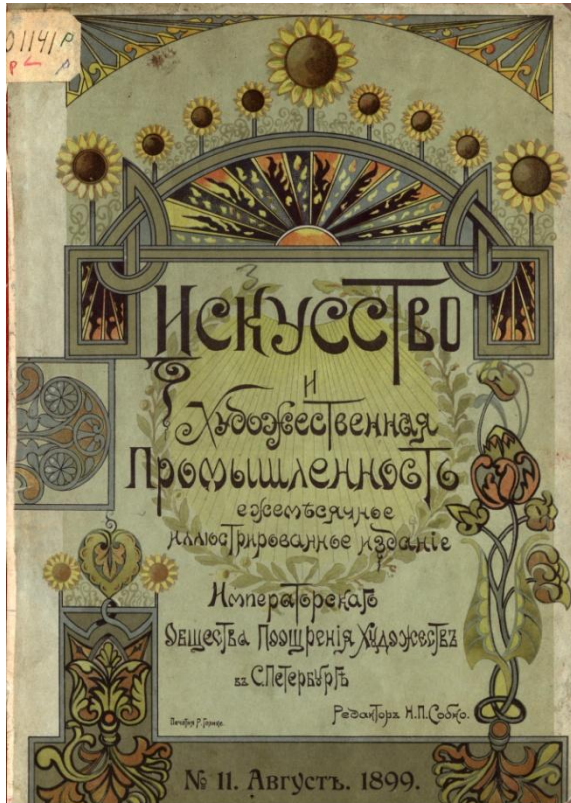 01141 Р
3
Искусство
и
Художественная
Промышленность
ежемѣсячное
иллюстрированное изданіе
Императорскаго
Общества Поощренія Художествъ
въ С.Петербургѣ
Печатня Р. Голике.
Редакторъ Н.П.Собко.
№ 11. Августъ. 1899.